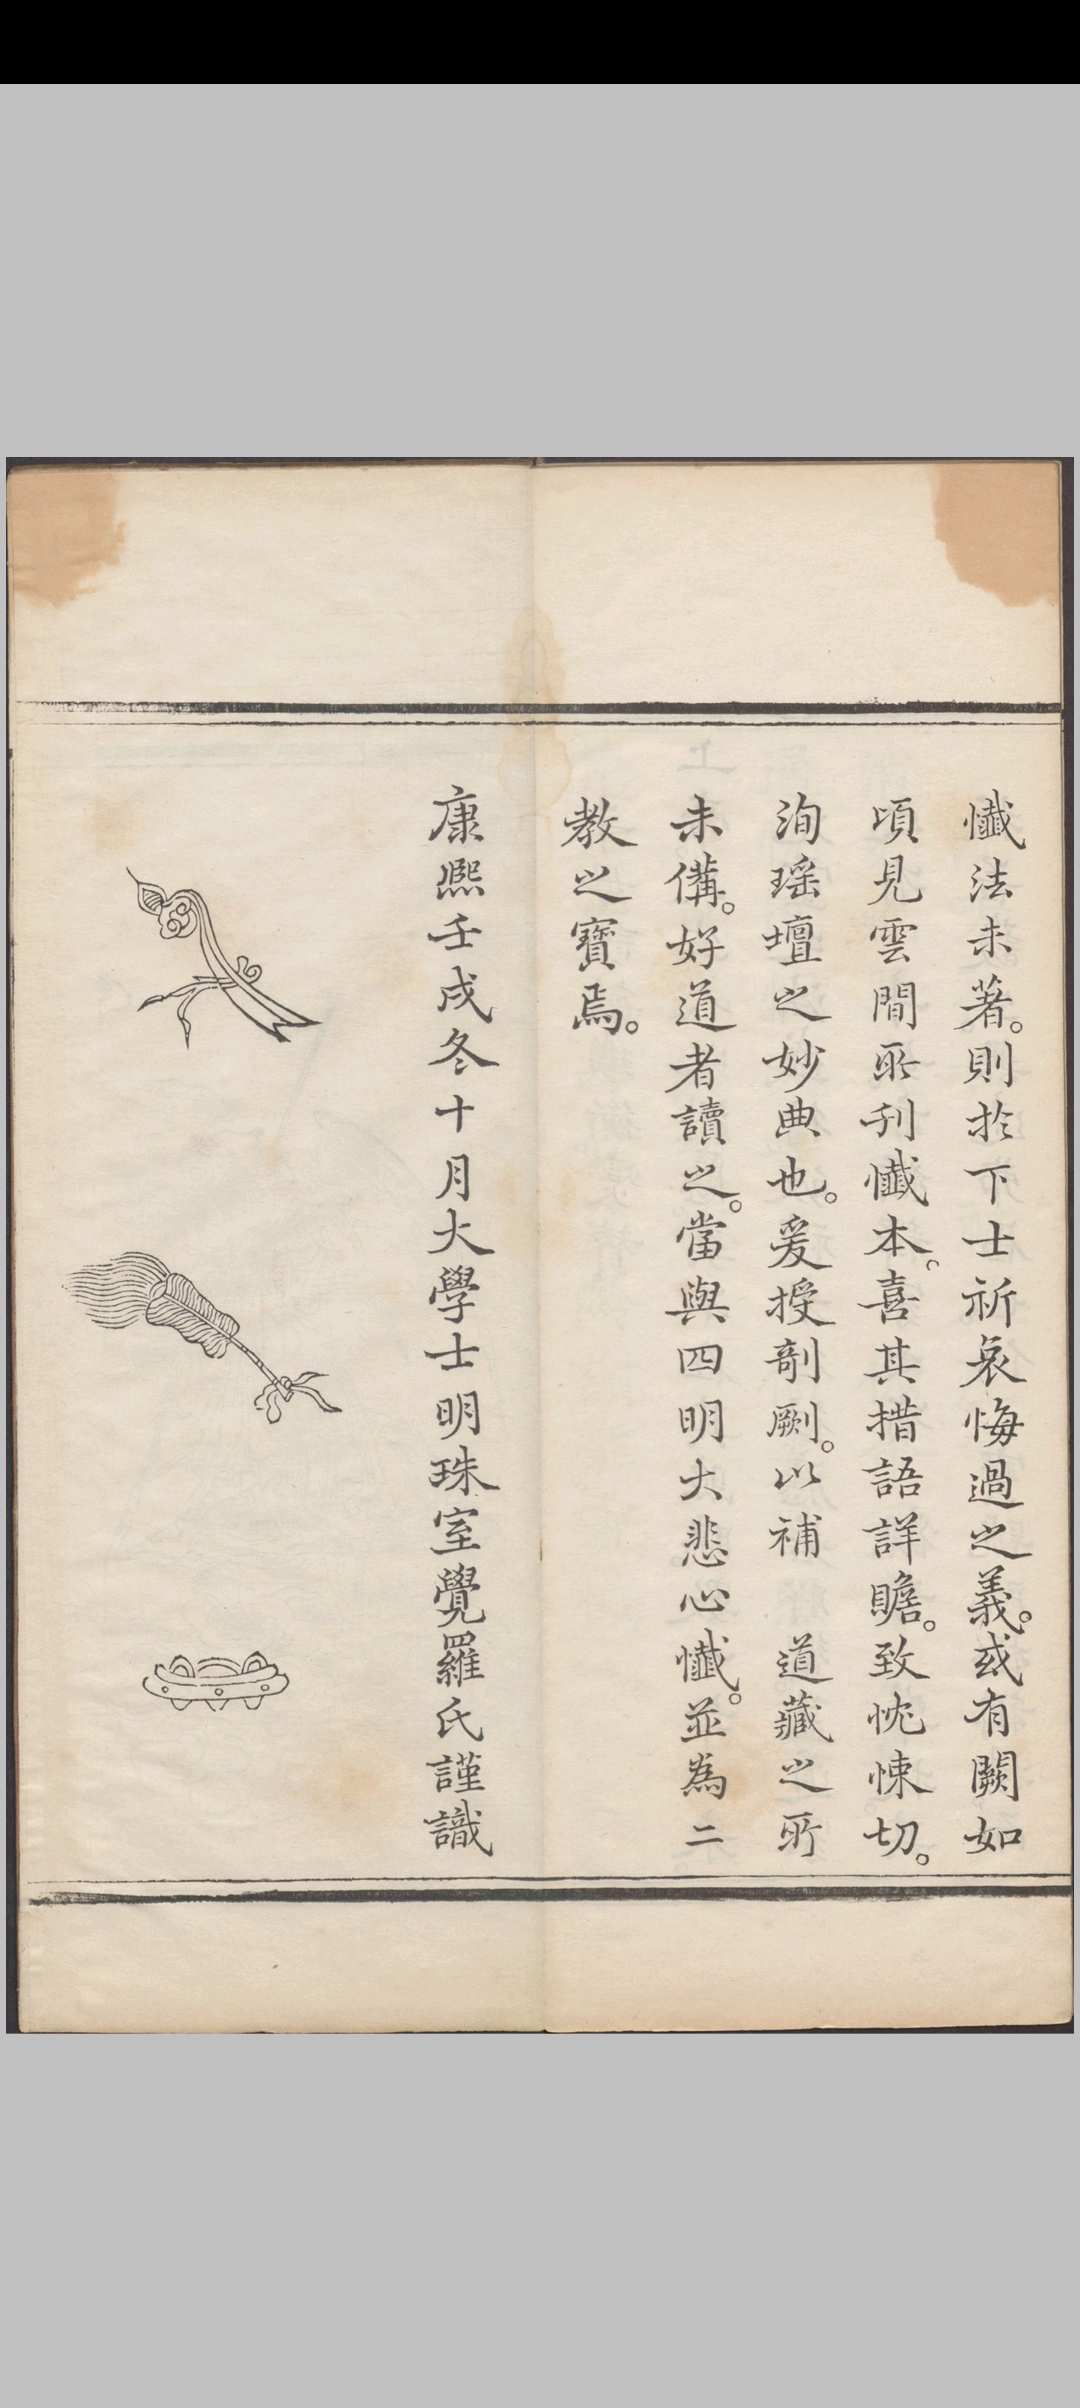 懺法未著。則於下士祈哀悔過之義。或有闕如
頃見雲間所刋懺本。喜其措語詳贍。致忱悚切。
洵瑶壇之妙典也。爰授剞劂。以補 道藏之所
未備。好道者讀之。當與四明大悲心懺。並為二
教之寶焉。
康熙壬戌冬十月大學士明珠室覺羅氏謹識